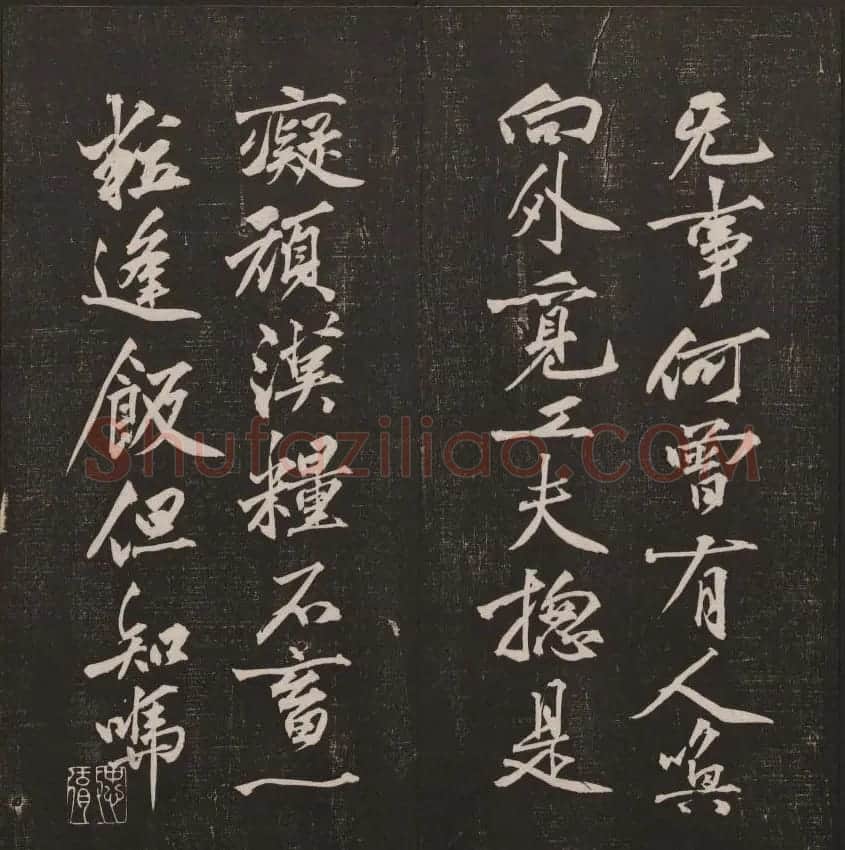 无事何曾有人喚
向外覓工夫揔是
癡頑漢糧不畜一
粒逢飯但知嗎
Shufaziliao.COM